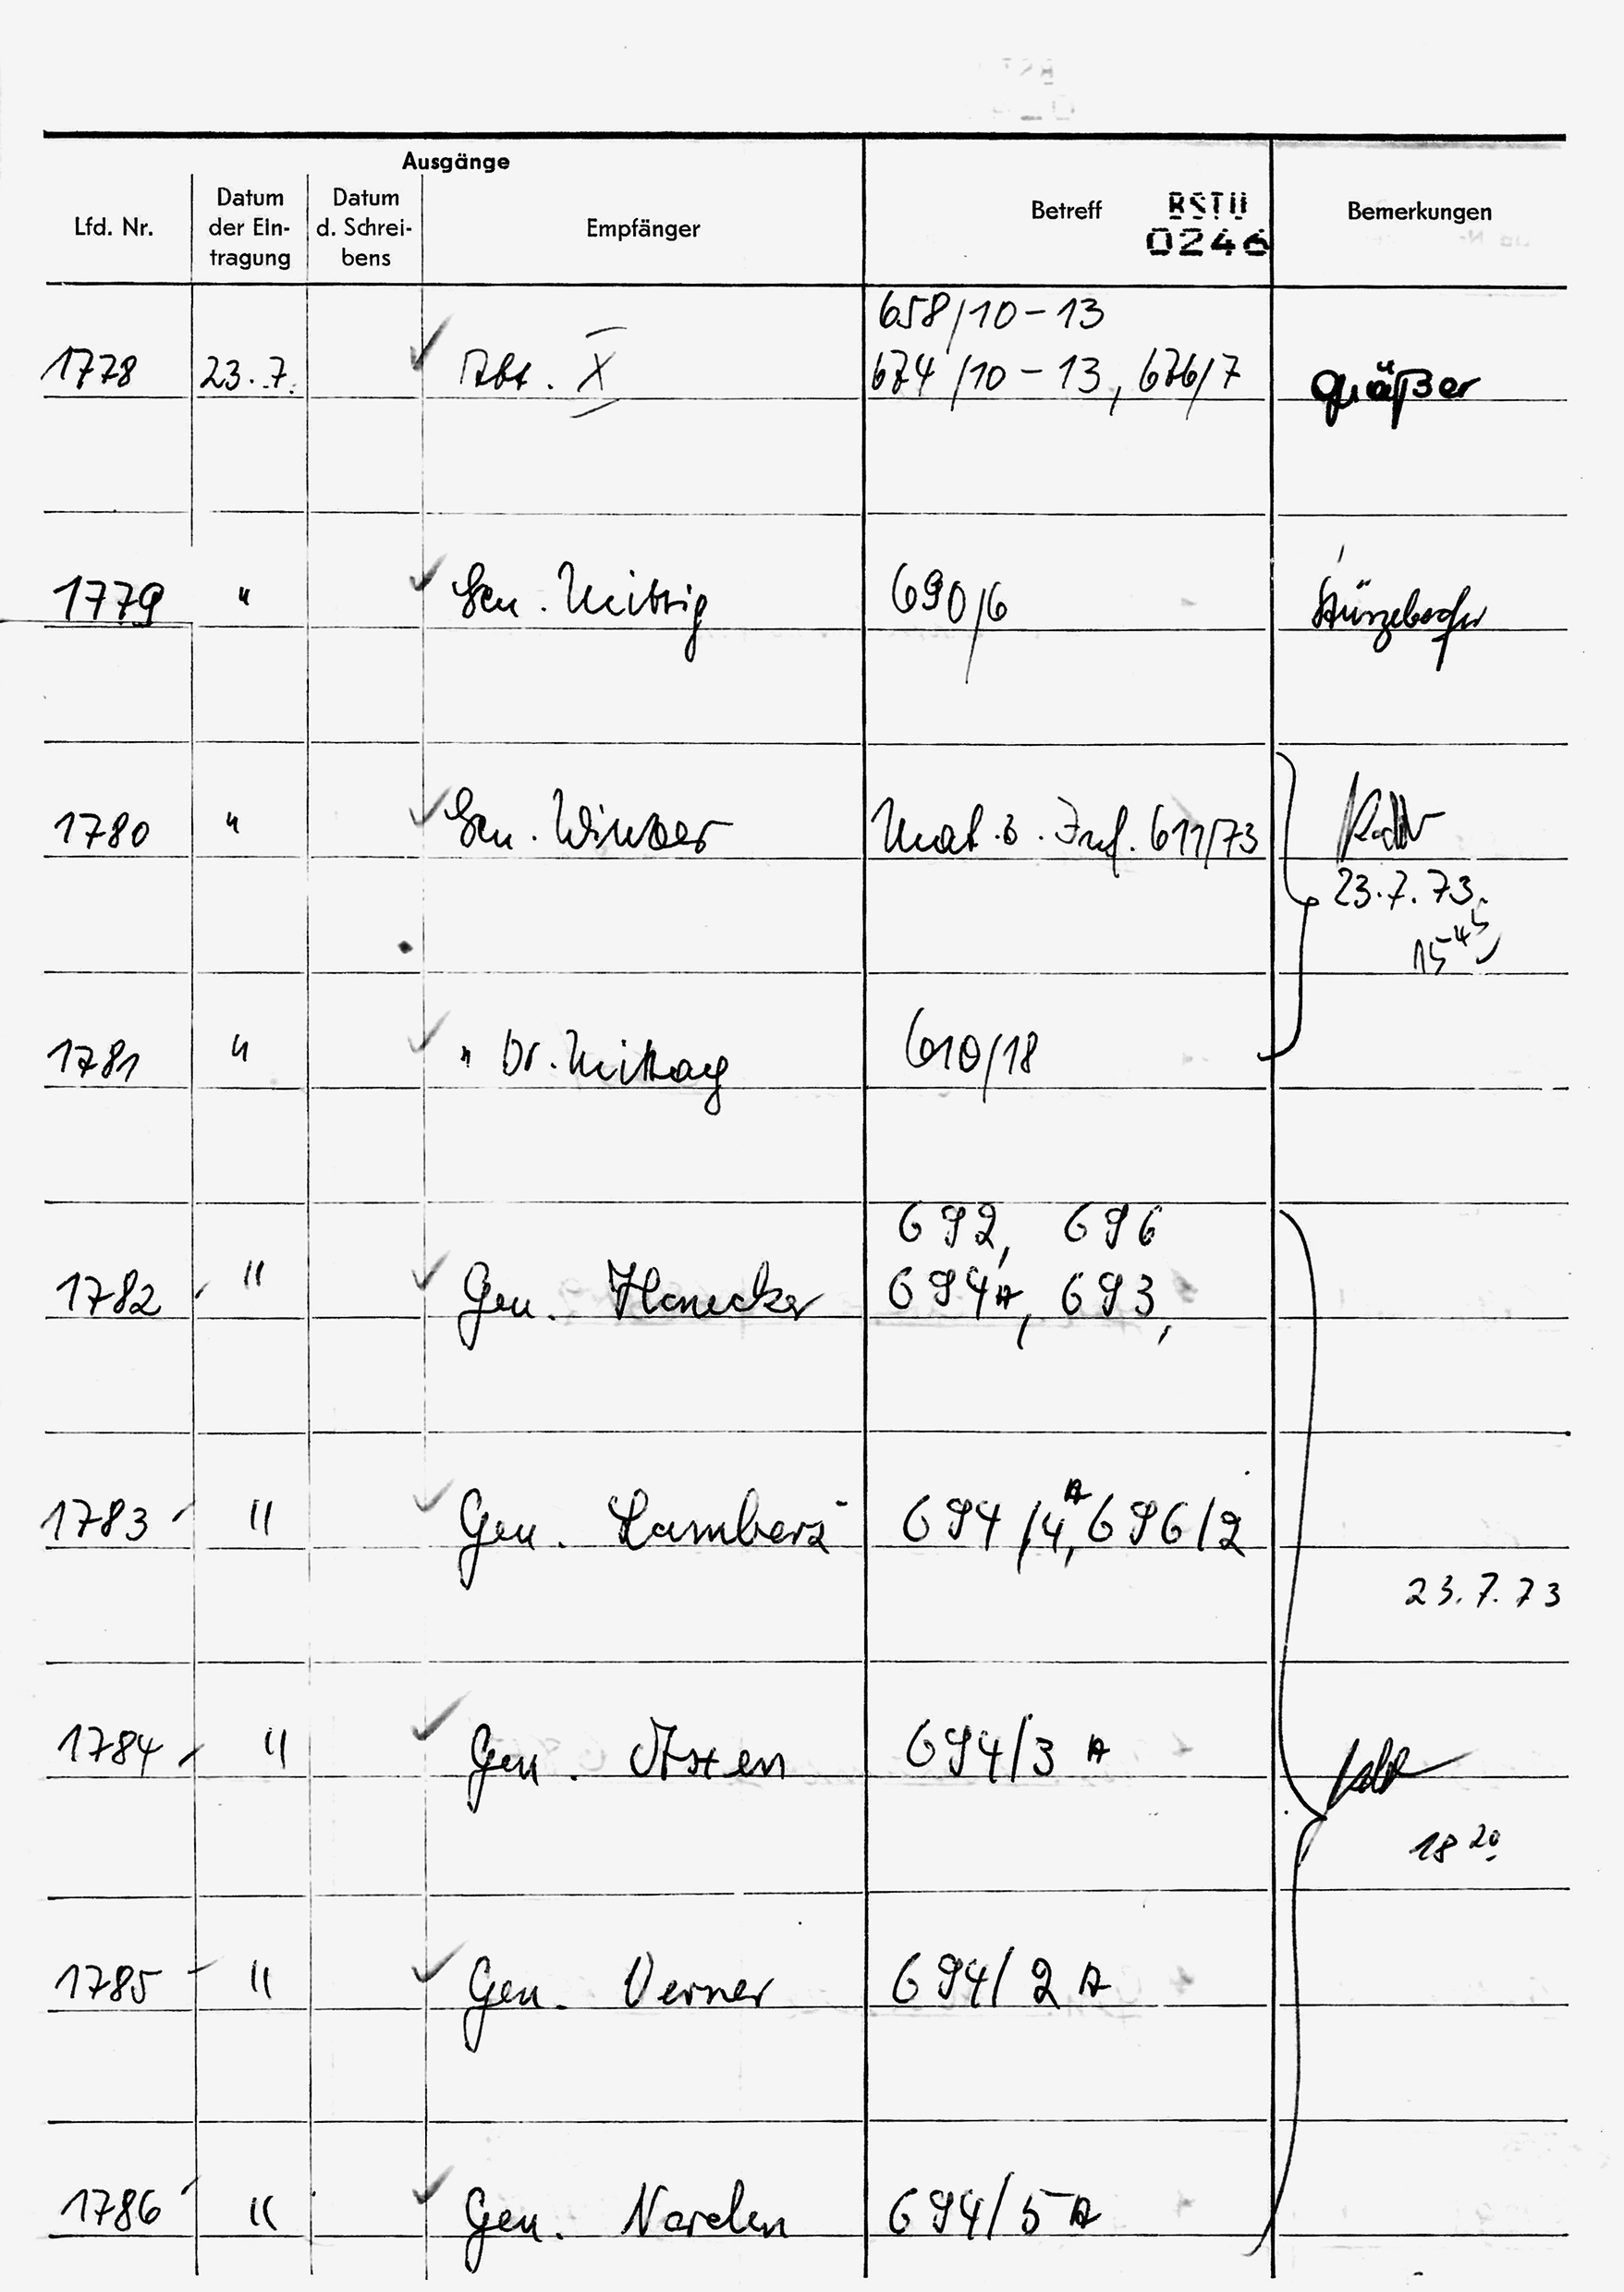 Ausgänge
Lfd. Nr. Datum der Ein- tragung Datum d. Schrei- bens Empfänger Betreff BSTU 0246 Bemerkungen
658/10-13
1778 23.7. Abt. X 674/10-13, 676/7
1779 " Gen. Mittig 690/6
1780 " Gen. Winzer Mat. z. Inf. 611/73
23.7.73
15 45
1781 " " Dr. Mittag 610/18
692, 696
1782 " Gen. Honecker 694A, 693,
1783 " Gen. Lamberz 694/4A, 696/2
23.7.73
1784 " Gen. Axen 694/3 A
18 20
1785 " Gen. Verner 694/2 A
1786 " Gen. Norden 694/5 A